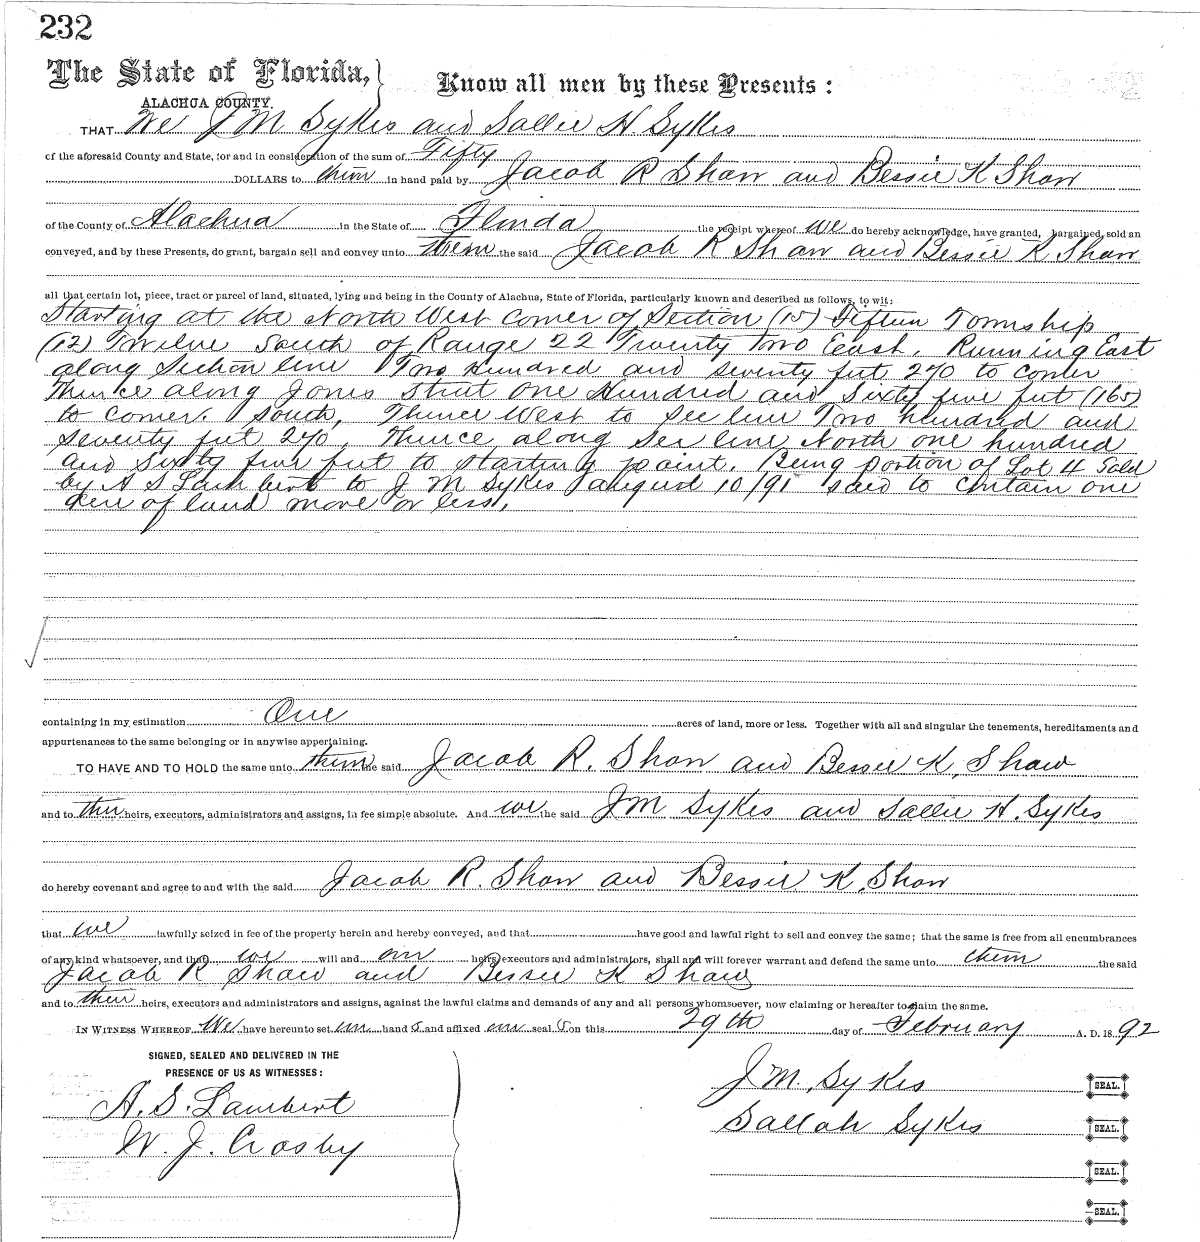 232
The State of Florida, } Know all men by these Presents:
ALACHUA COUNTY.
THAT We J M Sykes and Sallie H Sykes
of the aforesaid County and State, for and in consideration of the sum of Fifty
DOLLARS to them in hand paid by Jacob R Shaw and Bessie K Shaw
of the County of Alachua in the State of Florida the receipt whereof we do hereby acknowledge, have granted, bargained, sold an
conveyed, and by these Presents, do grant, bargain sell and convey unto them the said Jacob R Shaw and Bessie K Shaw
all that certain lot, piece, tract or parcel of land, situated, lying and being in the County of Alachua, State of Florida, particularly known and described as follows, to wit:
Starting at the North West Corner of Section (15) Fifteen Township
(12) Twelve South of Range 22 Twenty Two East. Running East
along Section line Two Hundred and seventy feet 270 to corner
Thence along Jones Street One Hundred and Sixty five feet (165)
to corner. South, Thence West to Sec line Two hundred and
seventy feet 270, Thence along Sec line North one hundred
and sixty five feet to starting point. Being portion of Lot 4 Sold
by A S Lambert to J M Sykes august 10/91 said to contain one
acre of land more or less.
containing in my estimation One acres of land, more or less. Together with all and singular the tenements, hereditaments and
appurtenances to the same belonging or in anywise appertaining.
TO HAVE AND TO HOLD the same unto them the said Jacob R. Shaw and Bessie K. Shaw
and to their heirs, executors, administrators and assigns, in fee simple absolute. And we the said J M Sykes and Sallie H. Sykes
do hereby covenant and agree to and with the said Jacob R. Shaw and Bessie K. Shaw
that we lawfully seized in fee of the property herein and hereby conveyed, and that have good and lawful right to sell and convey the same; that the same is free from all encumbrances
of any kind whatsoever, and that we will and our heirs, executors and administrators, shall and will forever warrant and defend the same unto them the said
Jacob R Shaw and Bessie K Shaw
and to their heirs, executors and administrators and assigns, against the lawful claims and demands of any and all persons whomsoever, now claiming or hereafter to claim the same.
IN WITNESS WHEREOF We have hereunto set our hand s and affixed our seal s on this 29th day of February A. D. 1892
SIGNED, SEALED AND DELIVERED IN THE
PRESENCE OF US AS WITNESSES:
J M. Sykes SEAL.
A. S. Lambert
Sallah Sykes SEAL.
W. J. Crosby
SEAL.
SEAL.